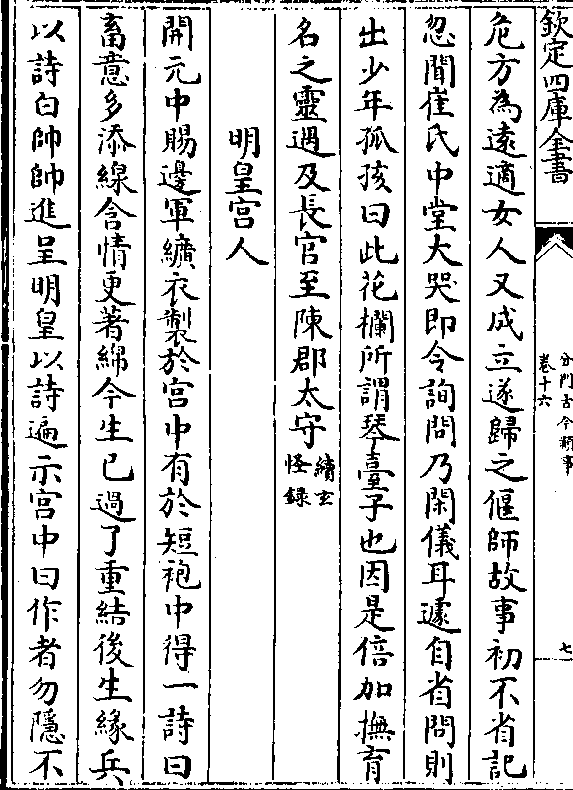 欽定四庫全書
分門古今類事
卷十六
七
危方為遠適女人又成立遂歸之偃師故事初不省記
忽聞崔氏中堂大哭即令詢問乃閑儀耳遽自省問則
出少年孤孩曰此花欄所謂琴臺子也因是倍加撫育
名之靈遇及長官至陳郡太守續玄
怪錄
明皇宫人
開元中賜邊軍纊衣製於宫中有於短袍中得一詩曰
畜意多添線含情更著綿今生已過了重結後生緣兵
以詩白帥帥進呈明皇以詩遍示宫中曰作者勿隱不